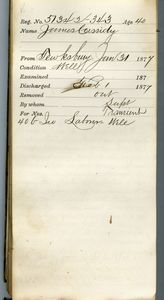 Reg. No. 51343-343 Age 40
Name James Cassidy
From Tewksbury Jan 31 1877
Condition Well
Examined 187
Discharged Feb 1 1877
Removed out
By whom Supt
For Nos. Transient
40 Ire Laborer